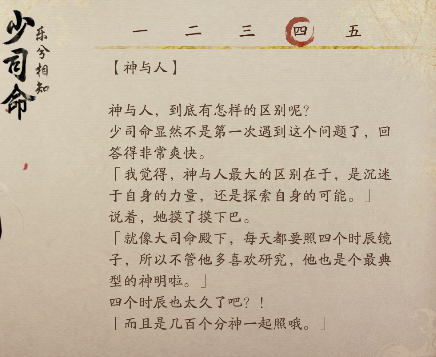 少司命
乐兮相知
一 二 三 四 五
【神与人】
神与人，到底有怎样的区别呢？
少司命显然不是第一次遇到这个问题了，回
答得非常爽快。
「我觉得，神与人最大的区别在于，是沉迷
于自身的力量，还是探索自身的可能。」
说着，她摸了摸下巴。
「就像大司命殿下，每天都要照四个时辰镜
子，所以不管他多喜欢研究，他也是个最典
型的神明啦。」
四个时辰也太久了吧？！
「而且是几百个分神一起照哦。」